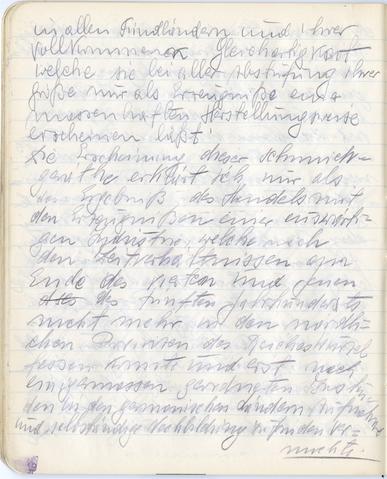 in allen Fundländern und ihrer
vollkommenen Gleichartigkeit
welche sie bei aller Abstufung ihrer
Größe nur als Erzeugniße einer
massenhaften Herstellungsweise
erscheinen läßt!
Die Erscheinung dieser Schmuck-
geräthe erklärt ich mir als
den Ergebniß des Handels mit
den Erzeugnißen einer auswärti-
gen Industrie, welche nach
den Zeitverhältnissen am
Ende des vierten und jenen
des fünften Jahrhunderts
nicht mehr in den nördli-
chen Provinzen des Reiches Wurzel
fassen konnte und erst nach
einigermassen geordneten Zustän-
den in den germanischen Ländern Aufnahme
und selbständige Nachbildung zu finden ver-
mochte.